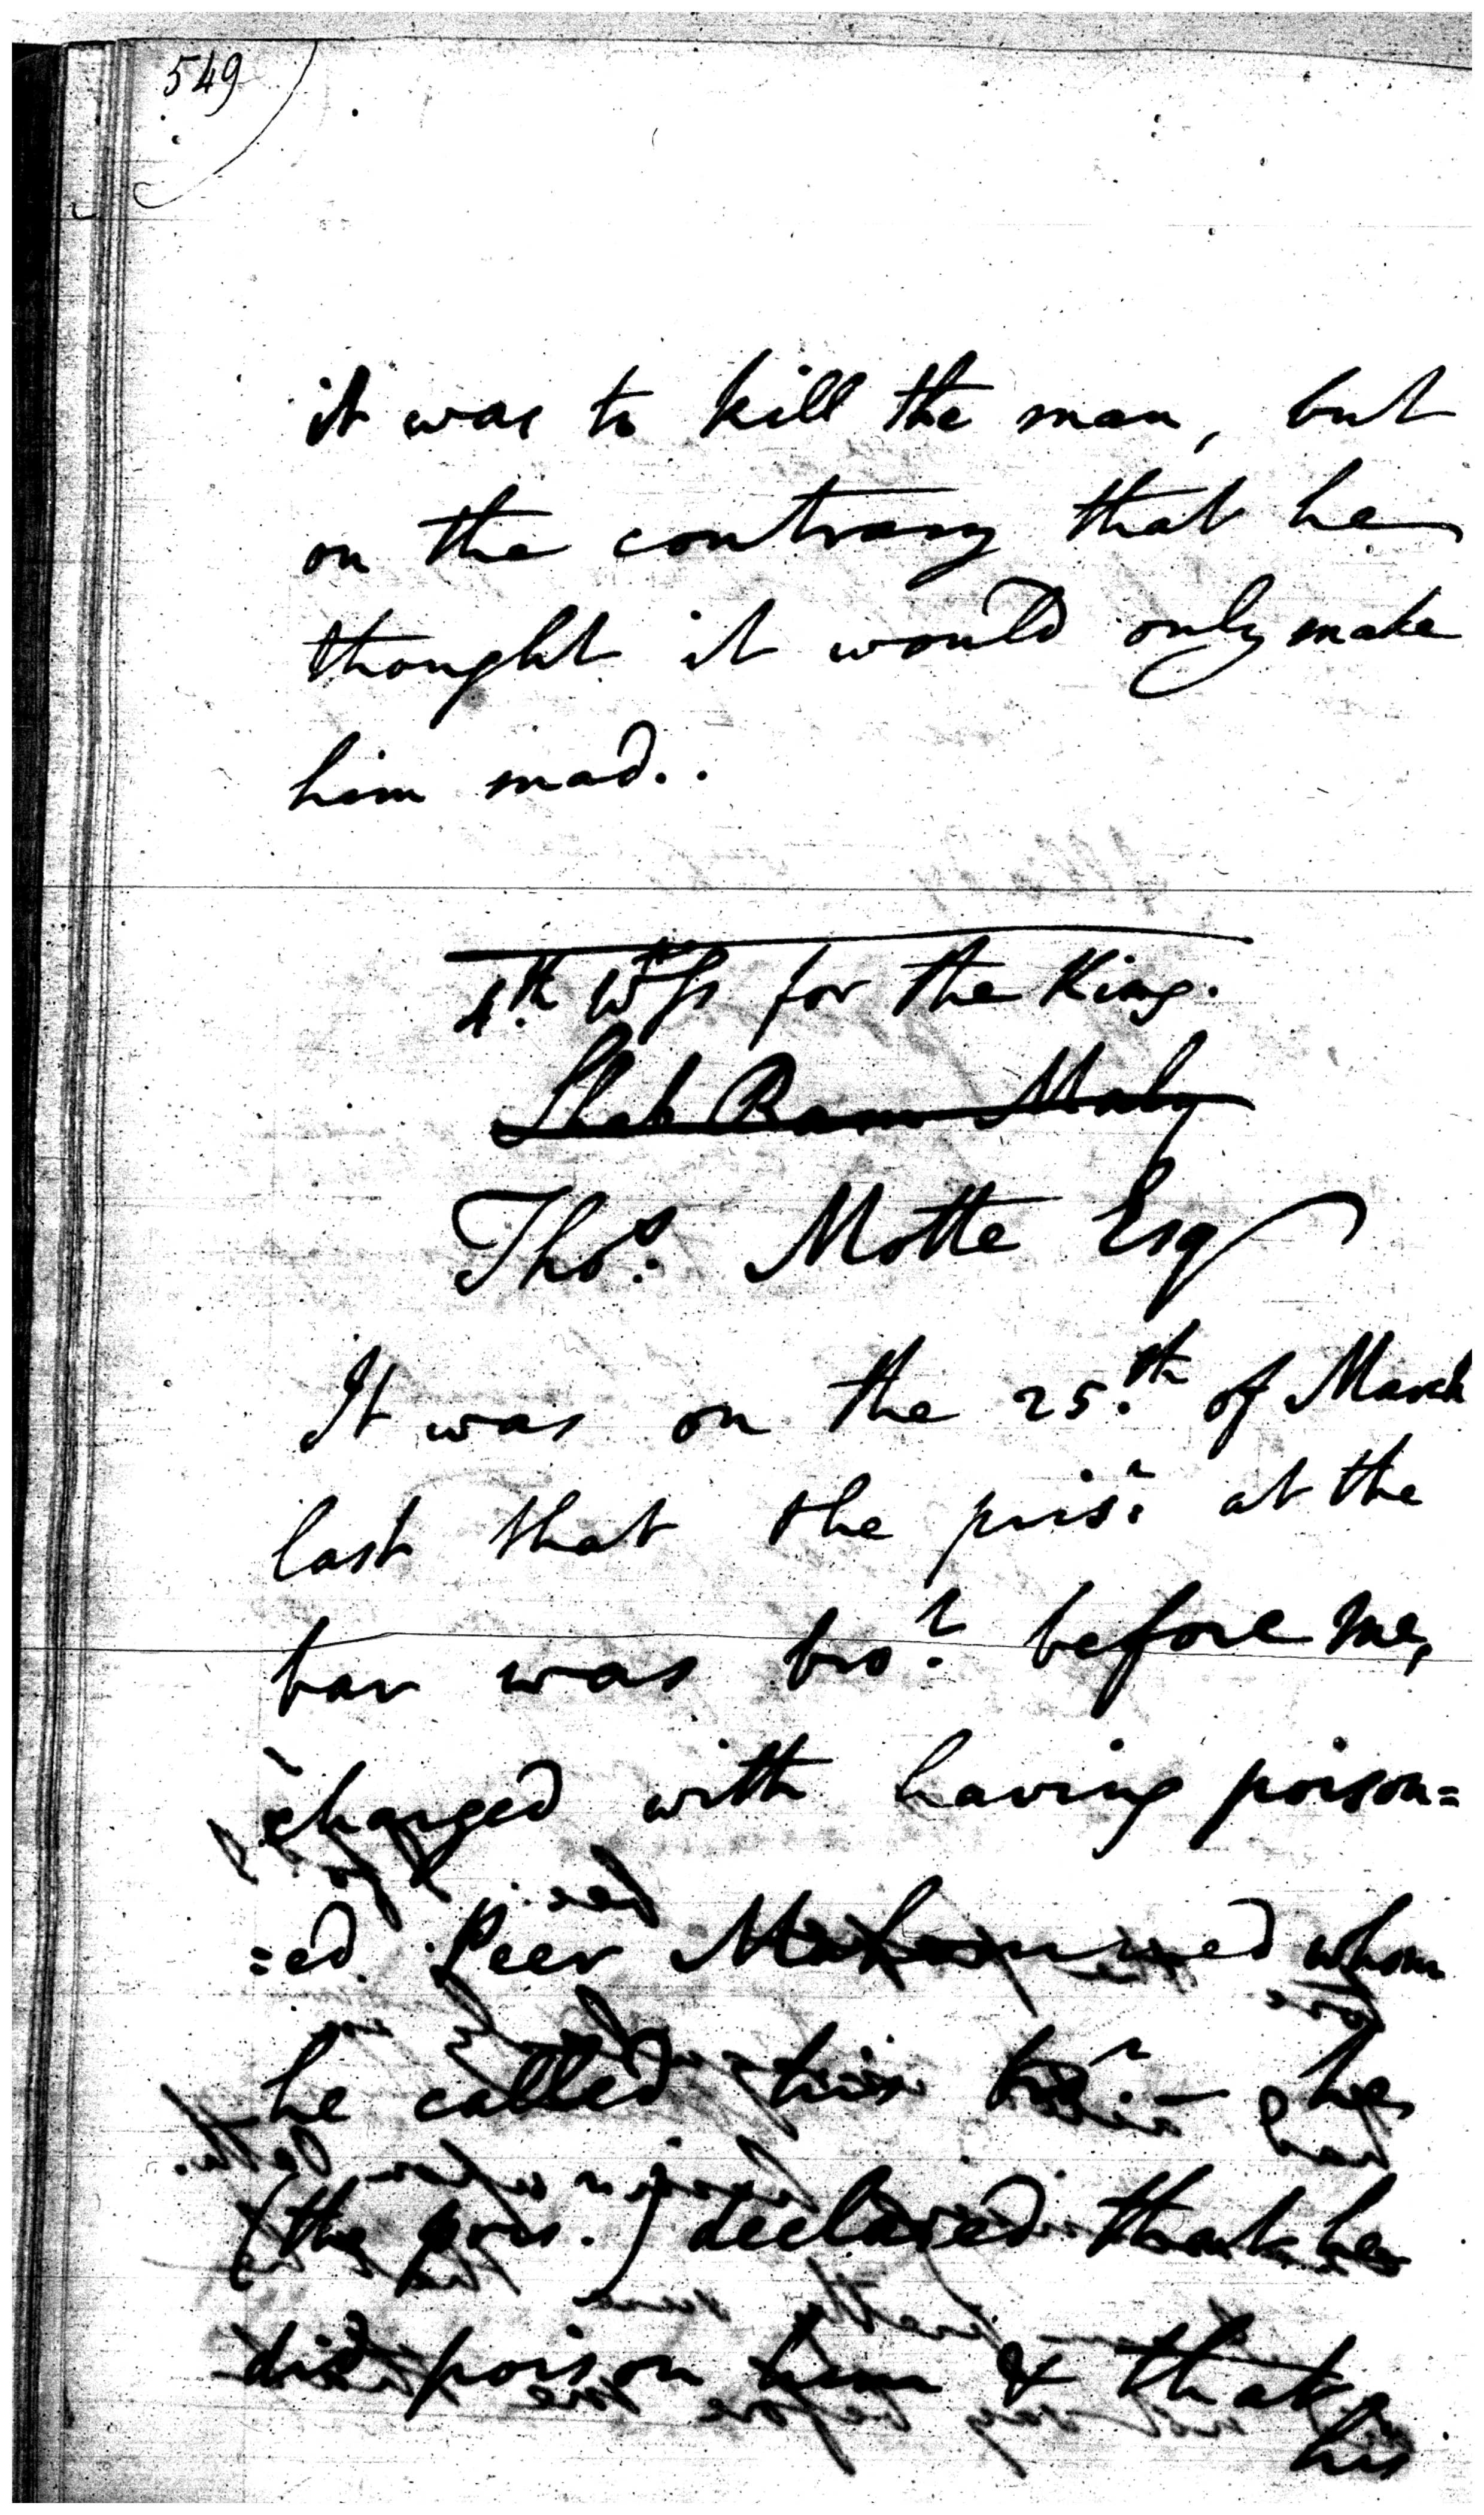 549
it was to kill the man, but
on the contrary that he
thought it would only make
him mad..
4th Wss for the King.
Thos. Motte Esq
It was on the 25th of March
last that the prisr. at the
bar was brot. before me,
charged with having poison=
=ed Peer Mahommed whom
he called his br. - he
(the pris.) declared that he
did poison him & that
his